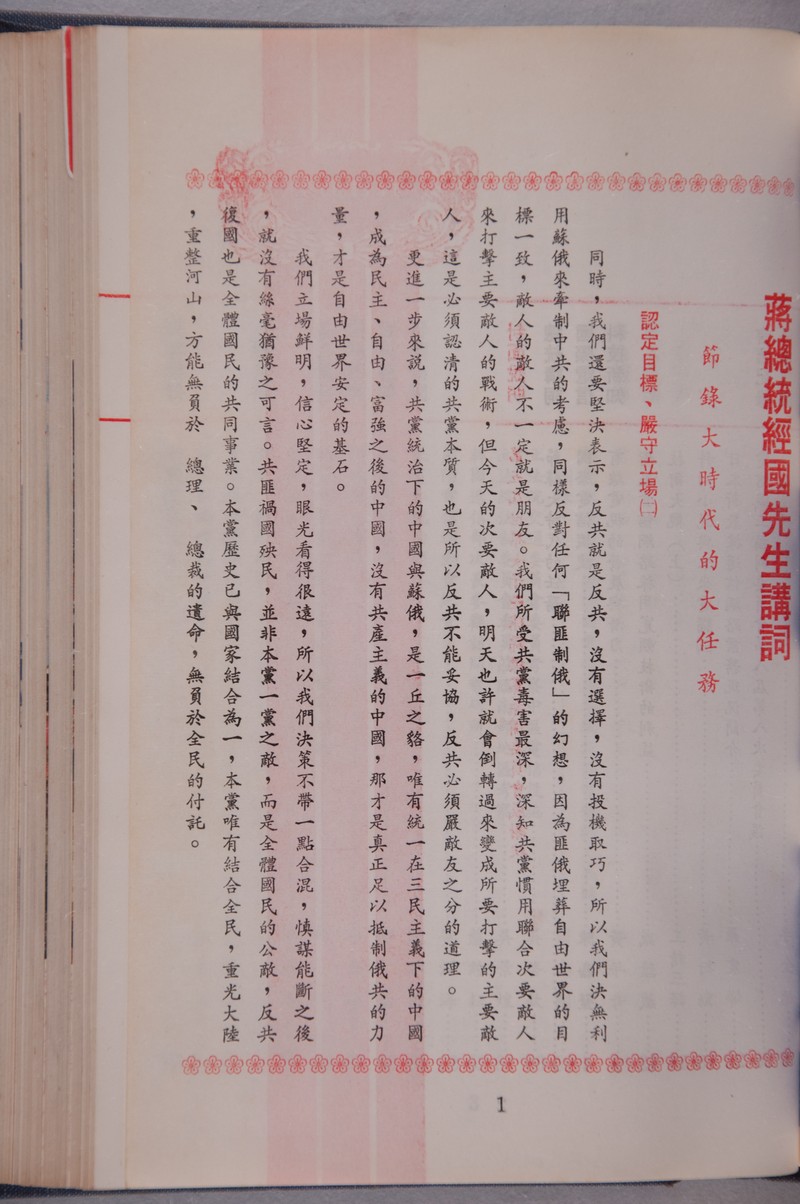 蔣總統經國先生講詞
節錄大時代的大任務
認定目標、嚴守立場㈡
同時，我們還要堅決表示，反共就是反共，沒有選擇，沒有投機取巧，所以我們決無利
用蘇俄來牽制中共的考慮，同樣反對任何「聯匪制俄」的幻想，因為匪俄埋葬自由世界的目
標一致，敵人的敵人不一定就是朋友。我們所受共黨毒害最深，深知共黨慣用聯合次要敵人
來打擊主要敵人的戰術，但今天的次要敵人，明天也許就會倒轉過來變成所要打擊的主要敵
人，這是必須認清的共黨本質，也是所以反共不能妥協，反共必須嚴敵友之分的道理。
更進一步來說，共黨統治下的中國與蘇俄，是一丘之貉，唯有統一在三民主義下的中國
，成為民主、自由、富強之後的中國，沒有共產主義的中國，那才是真正足以抵制俄共的力
量，才是自由世界安定的基石。
我們立場鮮明，信心堅定，眼光看得很遠，所以我們決策不帶一點含混，慎謀能斷之後
，就沒有絲毫猶豫之可言。共匪禍國殃民，並非本黨一黨之敵，而是全體國民的公敵，反共
復國也是全體國民的共同事業。本黨歷史已與國家結合為一，本黨唯有結合全民，重光大陸
，重整河山，方能無負於　總理、　總裁的遺命，無負於全民的付託。
1